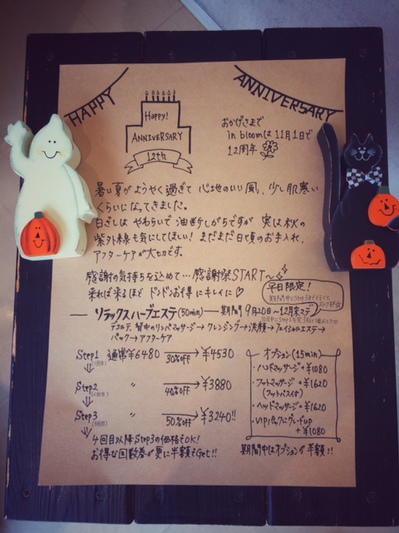 HAPPY
ANNIVERSARY
Happy!
ANNIVERSARY
12th
おかげさまで
in bloomは11月1日で
12周年
暑い夏がようやく過ぎて 心地のいい風、少し肌寒い
くらいになってきました。
日ざしは やわらいで 油断しがちですが 実は秋の
紫外線も気にしてほしい! まだまだ日々のお手入れ、
アフターケアが大切です。
感謝の気持ちを込めて… 感謝祭START〜
来れば来るほど ドンドンお得に キレイに♡
平日限定!
リラックスハーブエステ(50min) 期間 9月20日〜12月末マデ
デコルテ、背中のリンパマッサージ→クレンジング→洗顔→フェイシャルエステ→
パック→アフターケア
Step1 通常¥6480 30%OFF → ¥4530
Step2 〃 40%OFF → ¥3880
Step3 〃 50%OFF → ¥3240!!
4回目以降Step3の価格でOK!
お得な回数券が更に半額でGet!!
オプション(15min)
・ハンドマッサージ+¥1080
・フットマッサージ+¥1620
(フットバス付)
・ヘッドマッサージ+¥1620
・VIPパックにグレードup
+¥1080
期間中はオプションが半額!!